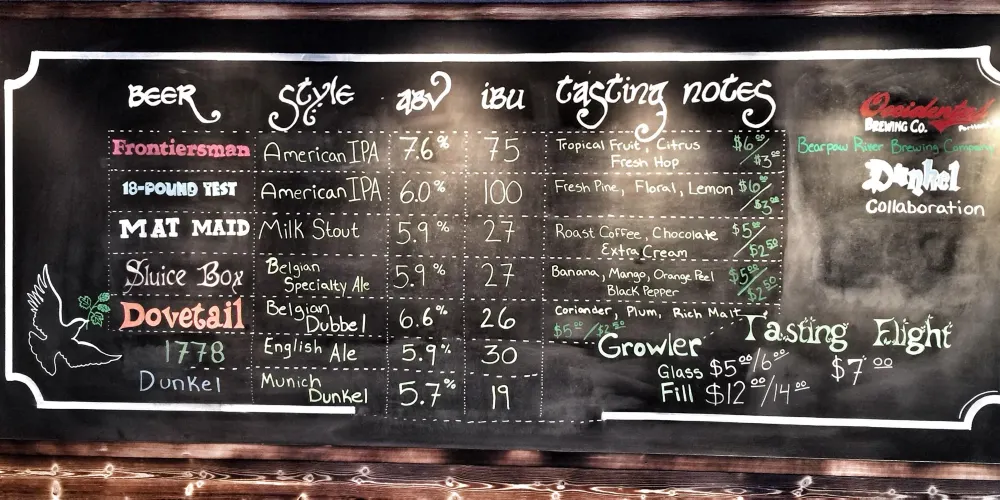 BEER Style ABV IBU tasting notes
Frontiersman American IPA 7.6% 75 Tropical Fruit, Citrus $6.00/
Fresh Hop $3.00
18-POUND TEST American IPA 6.0% 100 Fresh Pine, Floral, Lemon $6.00/
$3.00
MAT MAID Milk Stout 5.9% 27 Roast Coffee, Chocolate $5.00/
Extra Cream $2.50
Sluice Box Belgian 5.9% 27 Banana, Mango, Orange Peel $5.00/
Specialty Ale Black Pepper $2.50
Dovetail Belgian 6.6% 26 Coriander, Plum, Rich Malt
Dubbel $5.00/$2.50
1778 English Ale 5.9% 30
Dunkel Munich 5.7% 19
Dunkel
Growler
Glass $5.00/6.00
Fill $12.00/14.00
Tasting Flight
$7.00
Occidental
BREWING CO. Portland
Bearpaw River Brewing Company
Dunkel
Collaboration